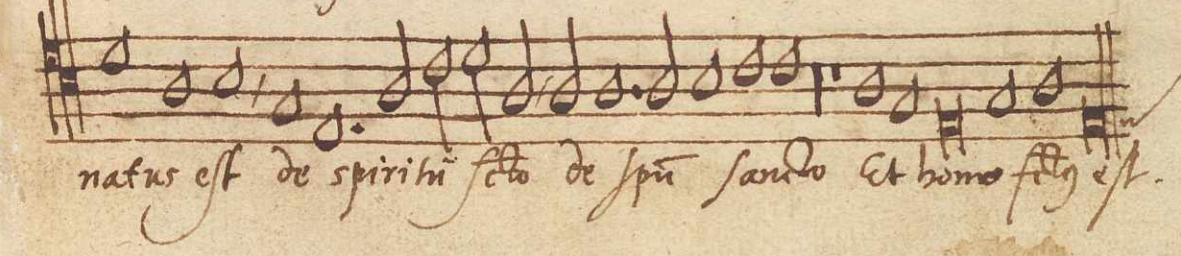 natus est de spiritũ sc̃to de spũ sancto Et homo fct9 est.